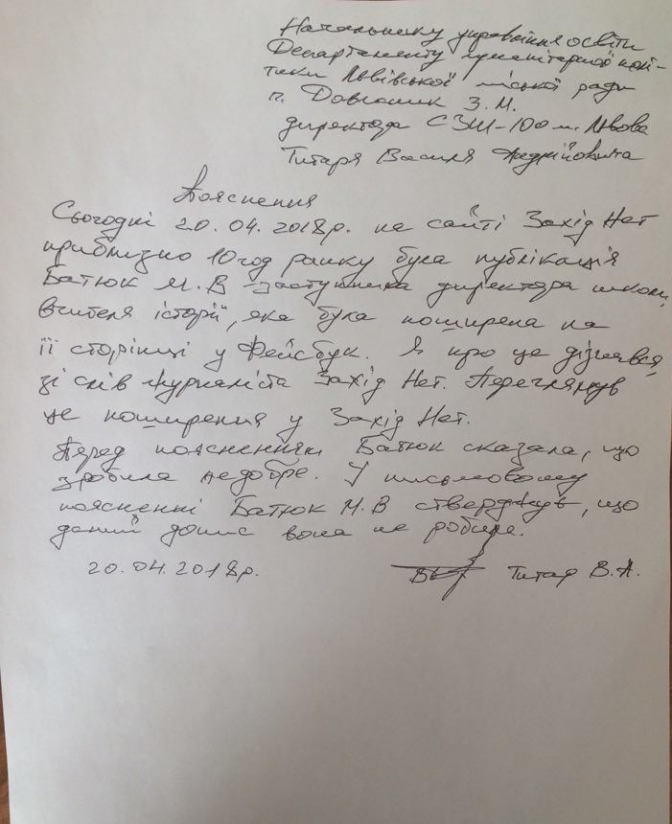 Начальнику управління освіти
Департаменту гуманітарної полі-
тики Львівської міської ради
п. Довганик З.М.
директора СЗШ-100 м. Львова
Титаря Василя Андрійовича
Пояснення
Сьогодні 20.04.2018р. на сайті Захід Нет
приблизно 10 год ранку була публікація
Батюк М.В - заступника директора школи,
вчителя історії, яка була поширена на
її сторінці у Фейсбук. Я про це дізнався
зі слів журналіста Захід Нет. Переглянув
це поширення у Захід Нет.
Перед поясненням Батюк сказала, що
зробила недобре. У письмовому
поясненні Батюк М.В стверджує, що
даний допис вона не робила.
20.04.2018р. Титар В.А.